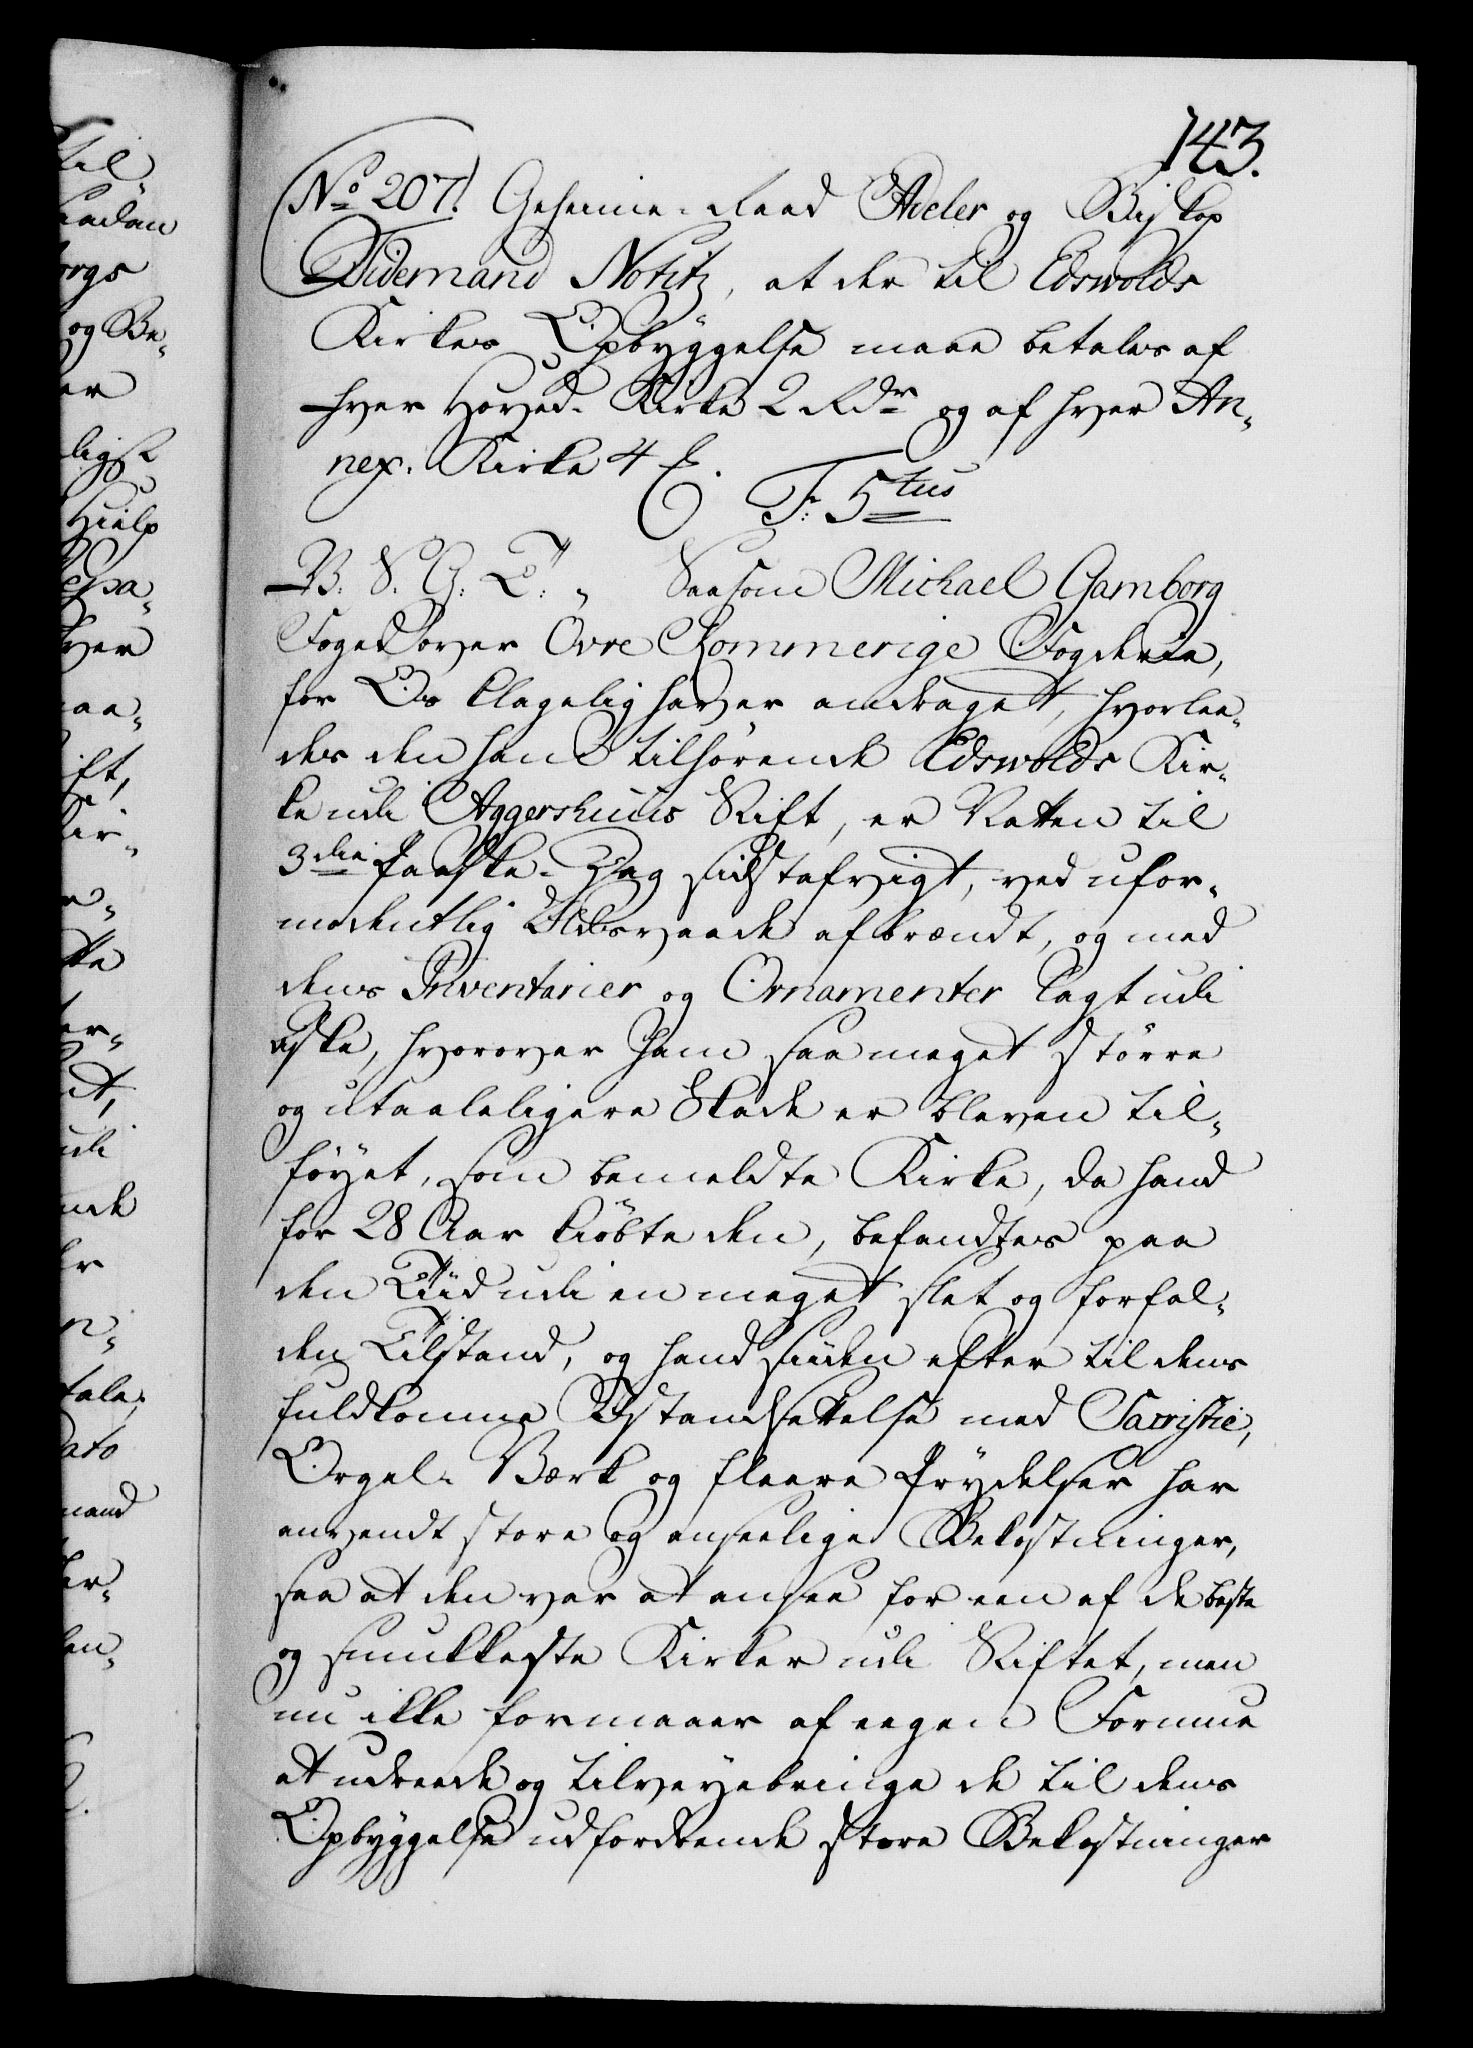 143.
No 207. Geheime-Raad Adeler og Biskop
Tidemand Notitz, at der til Edswolds
Kirkes Opbyggelse maae betales af
hver Hoved-Kirke 2 Rdr og af hver An-
nex-Kirke 4 ß.
F: 5tus
B. S. G. T: „ Saasom Michael Gamborg
Foged over Øvre Rommerige Fogderie,
for Os klagelig haver andraget, hvorlee-
des den hans tilhørende Edswolds Kir-
ke udi Aggershuus Stift, er Natten til
3die Paaske-Dag sidstafvigt, ved ufor-
modentlig Ildsvaade afbrændt, og med
dens Inventarier og Ornamenter lagt udi
aske, hvorover ham saa meget større
og utaaleligere Skade er bleven til-
føyet, som bemeldte Kirke, da hand
for 28 Aar kiøbte den, befandtes paa
den Tiid udi en meget slet og forfal-
den Tilstand, og hand siiden efter til dens
fuldkomne Istandsættelse med Sacristie,
Orgel-Værk og fleere Prydelser har
anvendt store og anseelige Bekostninger,
saa at den var at ansee for een af de beste
og smukkeste Kirker udi Stiftet, men
nu ikke formaaer af eegen Formue
at udreede og tilveyebringe de til dens
Opbyggelse udfordrende store Bekostninger
til
saadan
borgs
og Be-
er
ligst
Hielp
Repa-
hver
maa-
Stift,
Kir-
tale,
Dato
mand